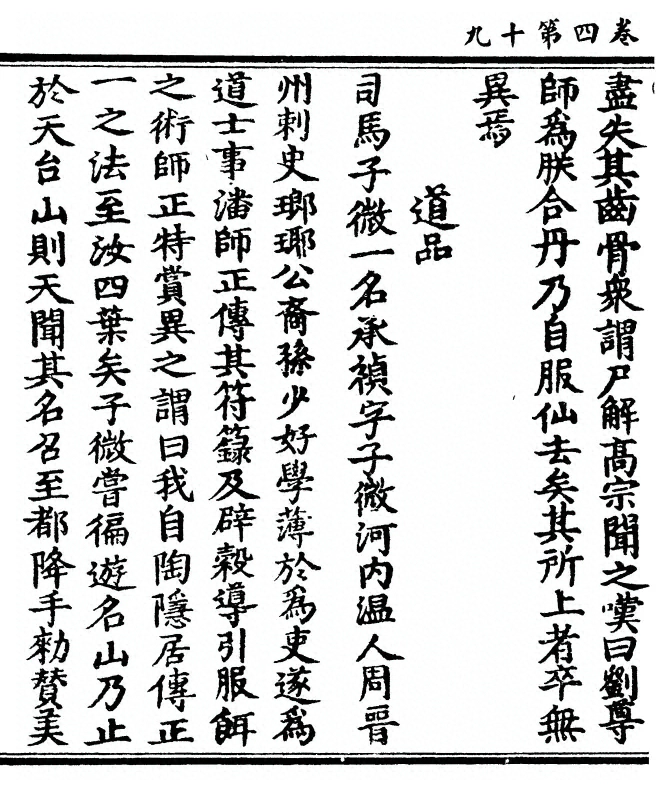 卷四第十九
盡失其齒骨衆謂尸解高宗聞之嘆曰劉尊
師爲朕合丹乃自服仙去矣其所上者卒無
異焉
道品
司馬子微一名承禎字子微河内温人周晉
州刺史瑯琊公裔孫少好學薄於爲吏遂爲
道士事潘師正傳其符籙及辟穀導引服餌
之術師正特賞異之謂曰我自陶隱居傳正
一之法至汝四葉矣子微嘗徧遊名山乃止
於天台山則天聞其名召至都降手勑贊美